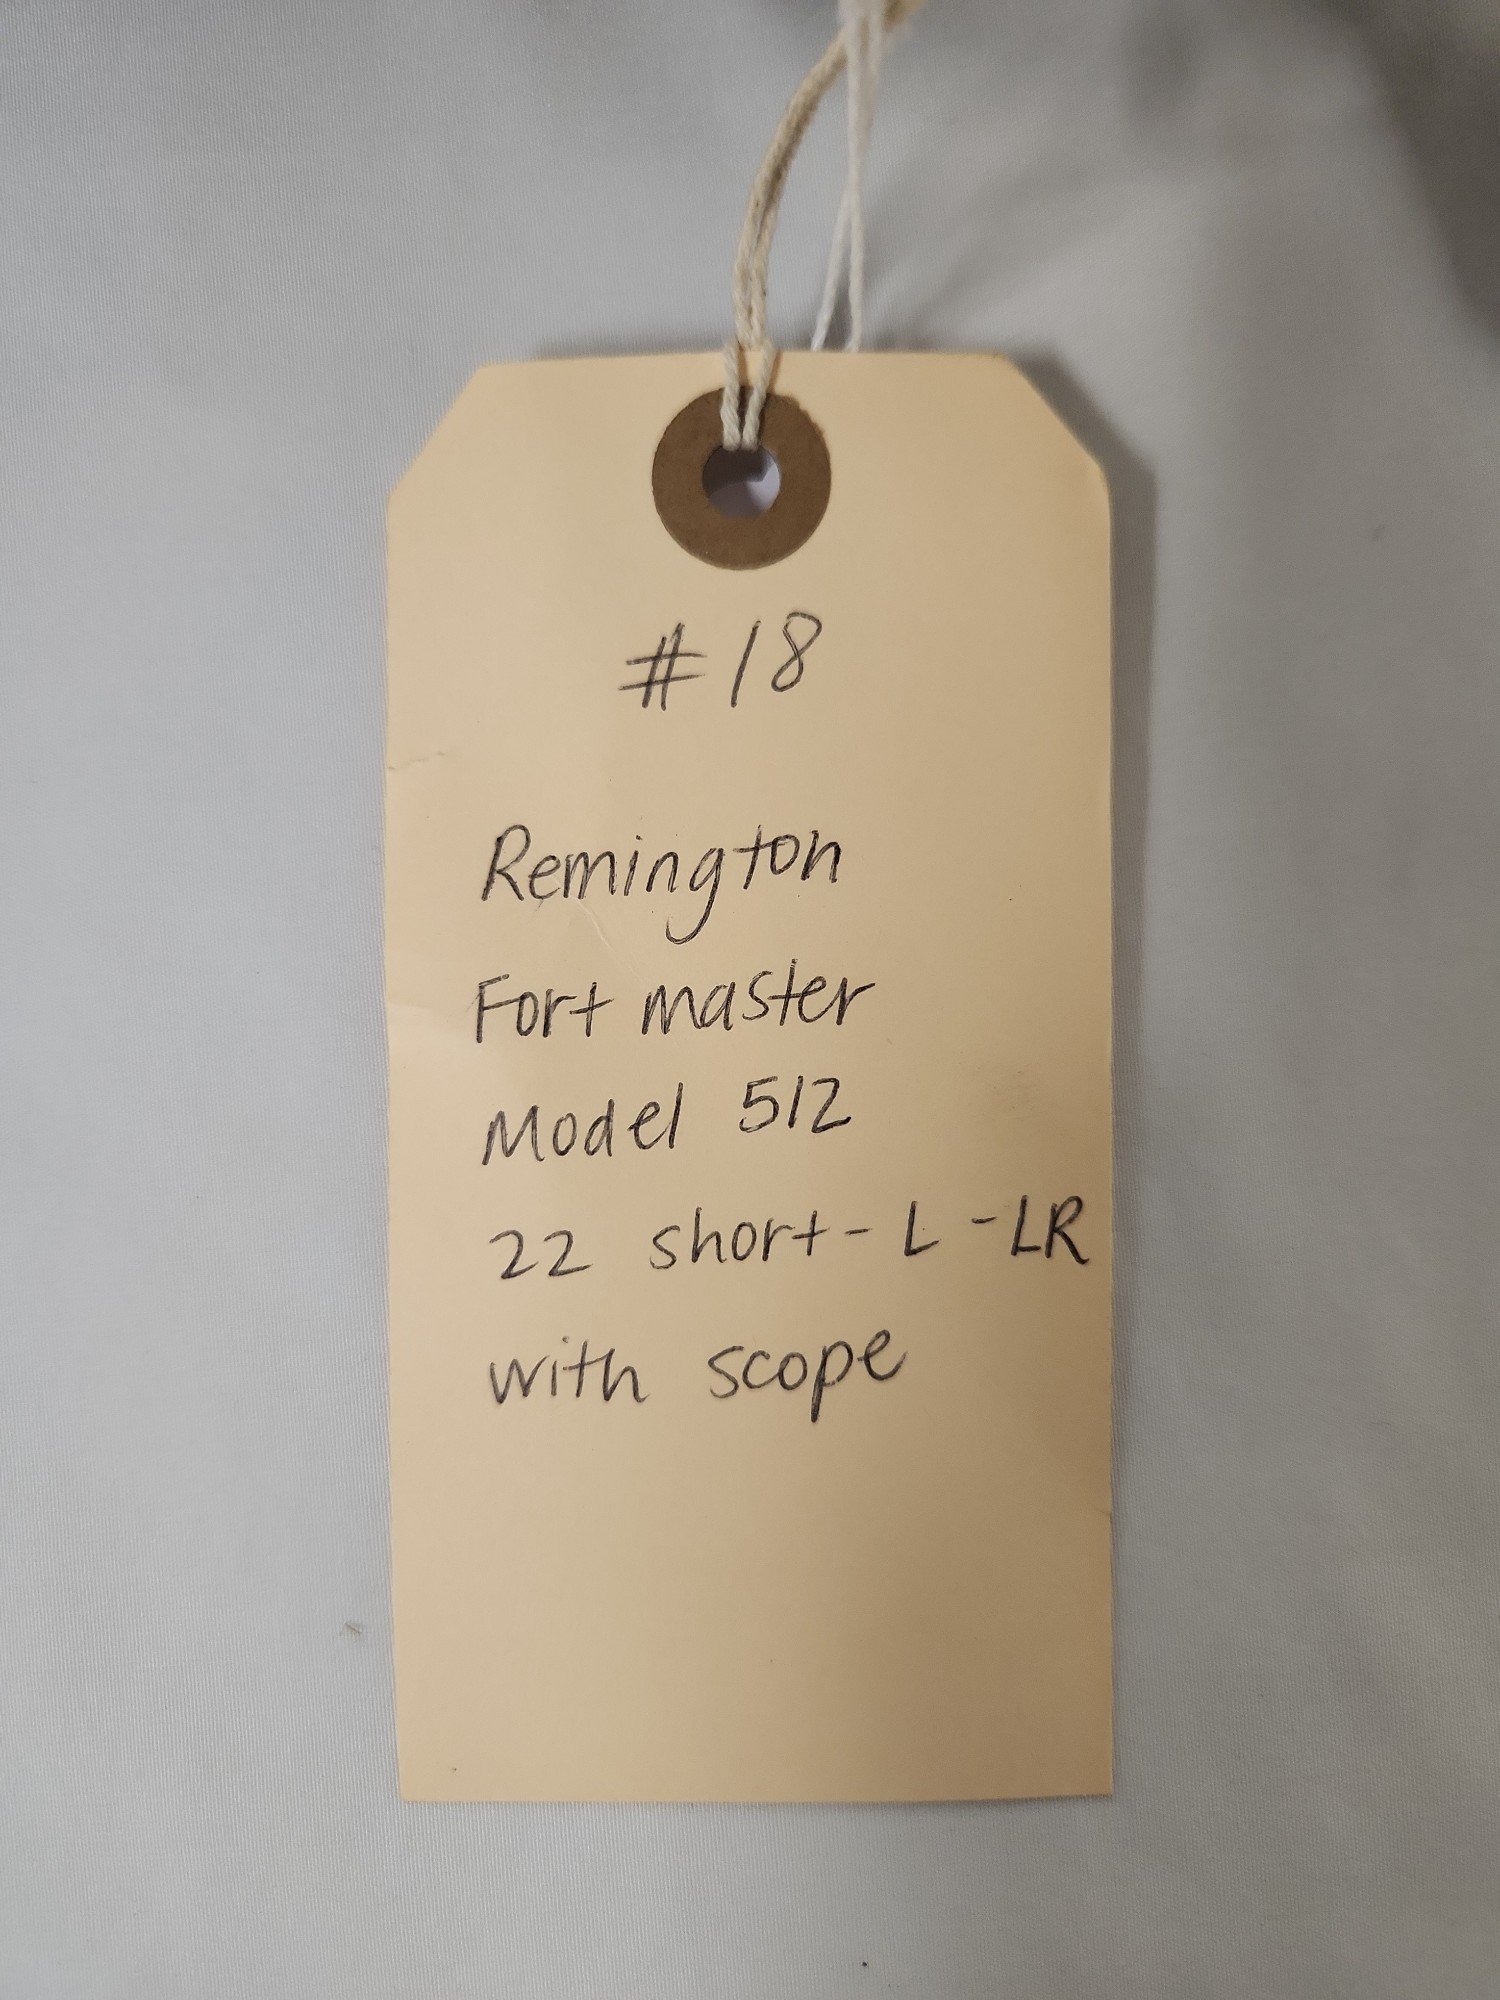 #18
Remington
Fort master
Model 512
22 short - L - LR
with scope